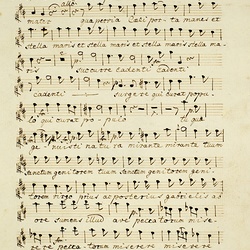 allo.
mater quae pervia Caeli porta manes et
stella maris et stella maris et stella maris stella ma
ris Succurre cadenti Cadenti
cadenti surgere qui curat popu
lo qui curat populo tu quae
genuisti natura mirante mirante tuum
Sanctum genitorem tuum Sanctum genitorem geni
torem Virgo prius ac posterius gabrielis ab
ore Sumens illud ave peccatorum mise
rere peccatorum miserere miserere